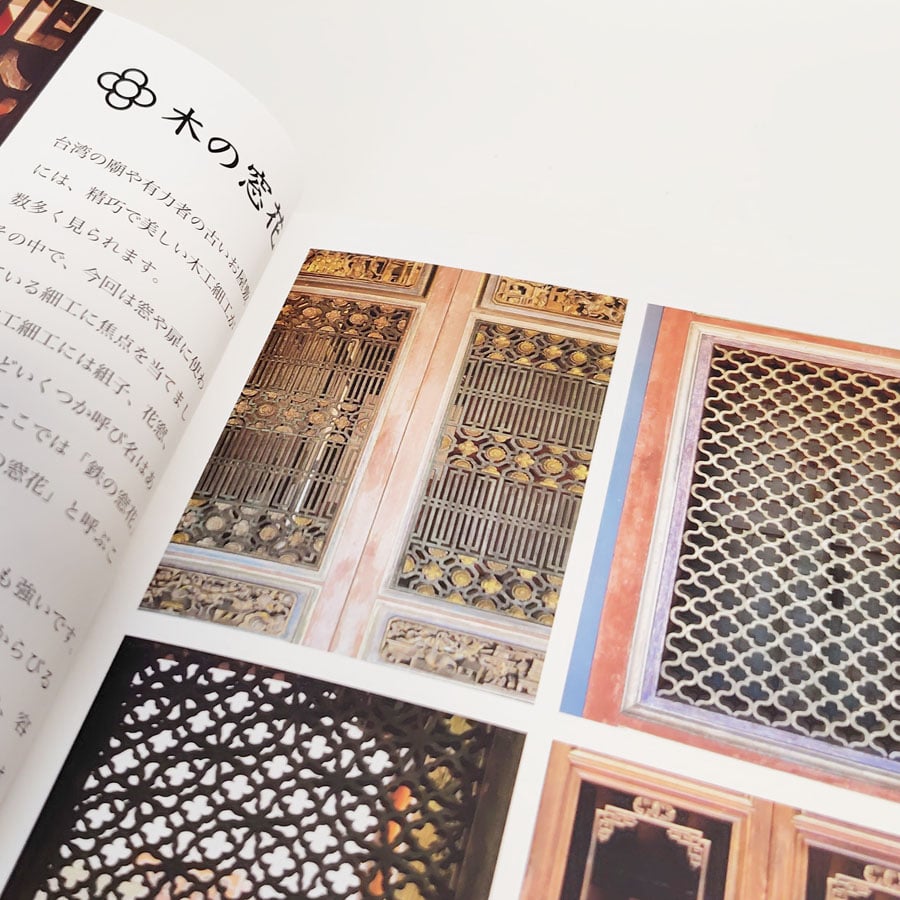 木の窓花
台湾の廟や有力者の古いお屋敷
には、精巧で美しい木工細工が
数多く見られます。
その中で、今回は窓や扉に使わ
ている細工に焦点を当てまし
工細工には組子、花窓、
どいくつか呼び名はあ
ここでは「鉄の窓花
の窓花」と呼ぶこ
も強いです。
からひろ
、客